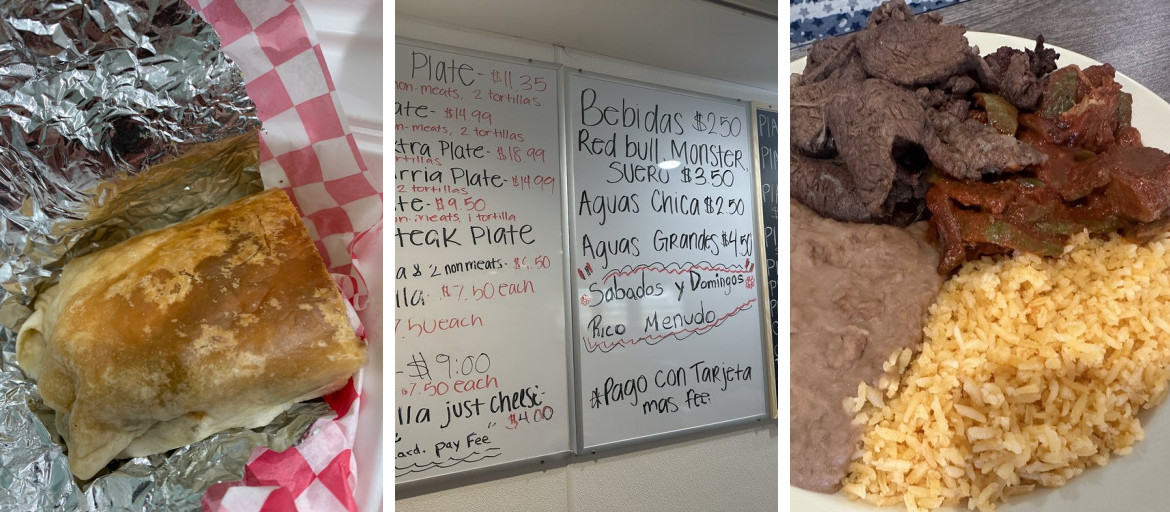 Plate - $11.35
non-meats, 2 tortillas
ate - $14.99
n-meats, 2 tortillas
xtra Plate - $18.99
rtillas
rria Plate - $14.99
2 tortillas
te - $9.50
on-meats, 1 tortilla
teak Plate
a & 2 non meats - $6.50
lla - $7.50 each
7.50 each
- $9:00
$7.50 each
lla just cheese
$4.00
ard. pay Fee
Bebidas $2.50
Red bull, Monster,
suero $3.50
Aguas Chica $2.50
Aguas Grandes $4.50
Sabados y Domingos
Rico Menudo
*Pago con Tarjeta
mas fee